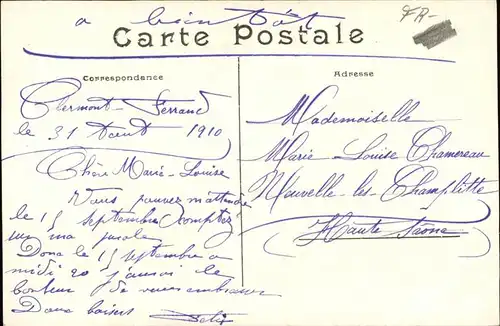 a bien tôt
FR-
Carte Postale
Correspondance
Clermont-Ferrand
le 31 Aout 1910
Chère Marie-Louise
Vous pouvez m'attendre
le 15 septembre comptez
sur ma parole
Donc le 15 septembre a
midi 20 j'aurai le
bonheur de vous embrasser
Doux baisers
Adresse
Mademoiselle
Marie Louise Chamereau
Neuvelle-les-Champlitte
Haute Saône